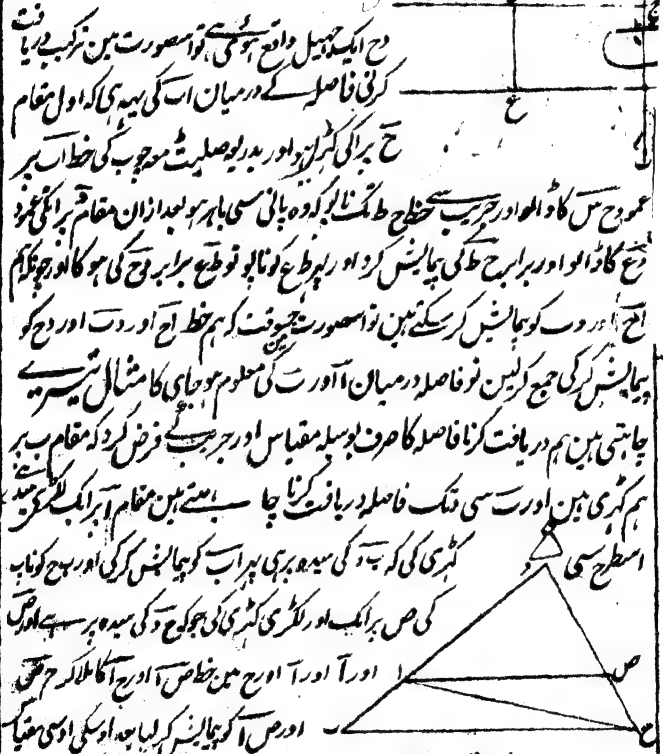 دح ایک جہیل واقع ہوئی ہے تو اسصورت مین ترکیب دریافت
کرنی فاصلہ کے درمیان اب کی یہہ ہی کہ اول مقام
ح پر اکی کٹر اور بذریعہ صلیب معہ چوب کی خط اب پر
عمود ح س کا ڈالو اور جریب سے خط ح ط تک ناپو کہ وہ پانی سی باہر ہو بعد ازان مقام د پر ایک عمود
دع کا ڈالو اور برابر ح ط کی پیمایش کرو اور پہر ط ع کو ناپو تو ط ع برابر دح کی ہوگا اور چونکہ ہم
اح اور دب کو پیمایش کر سکتے ہین تو اسصورت جسوقت کہ ہم خط اح اور دب اور دح کو
پیمایش کر کی جمع کر لین تو فاصلہ درمیان ا اور ب کی معلوم ہو جای گا مثال تیسرے
چاہتی ہین ہم دریافت کرنا فاصلہ کا صرف بوسیلہ مقیاس اور جریب کے فرض کرو کہ مقام ب پر
ہم کہڑی ہین اور ب سی د تک فاصلہ دریافت کرنا چاہتے ہین مقام ا پر ایک لکڑی سیدہی
اسطرح سی کہڑی کی کہ ب د کی سیدہ پر ہی پہر اب کو پیمایش کر کی اور ب ح کو ناپ
کی ص پر ایک اور لکڑی کہڑی کی جو کہ ح د کی سیدہ پر ہے اور ص
اور ا اور ا اور ح مین خط ص ا اور ح ا کا ملا کر ح ص
اور ص ا کو پیمایش کر لیا بعد اوسکی اوسی مقیاس
ح
ع
د
ا
ص
ب
ح